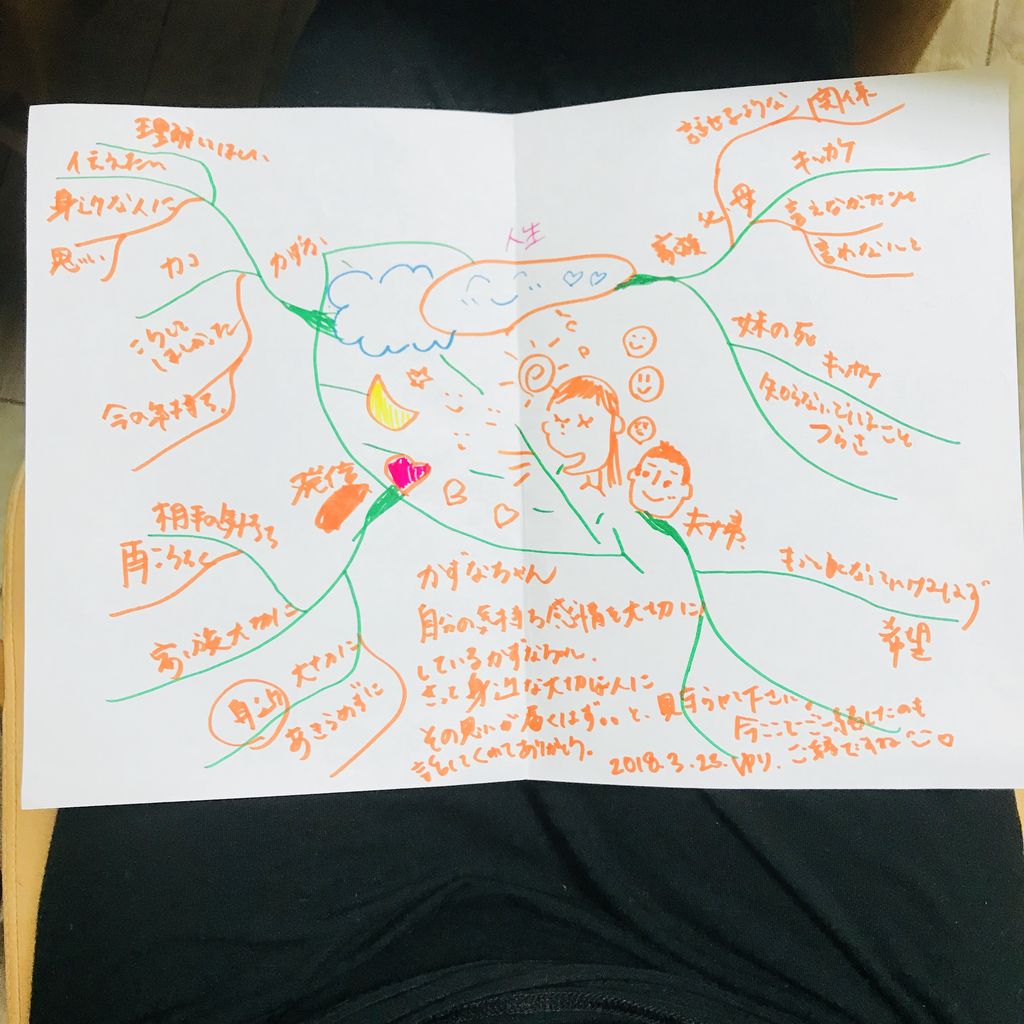 人生
理解してほしい
伝えたい
身近な人に
思い
カコ
こうして
ほしかった
今の気持ち
発信
相手の気持ち
家族大切に
身近
大切に
あきらめずに
話せるような関係
家族
父母
キッカケ
言えなかったこと
言われないこと
妹の死
キッカケ
知らないでいること
つらさ
夫婦
希望
かずなちゃん
自分の気持ち感情を大切に
しているかずなちゃん
きっと身近な大切な人に
その思いが届くはず。。と、見守らせて下さい。
話してくれてありがとう。
今ここでご一緒したのも
ご縁ですね
2018.3.25. ゆり.